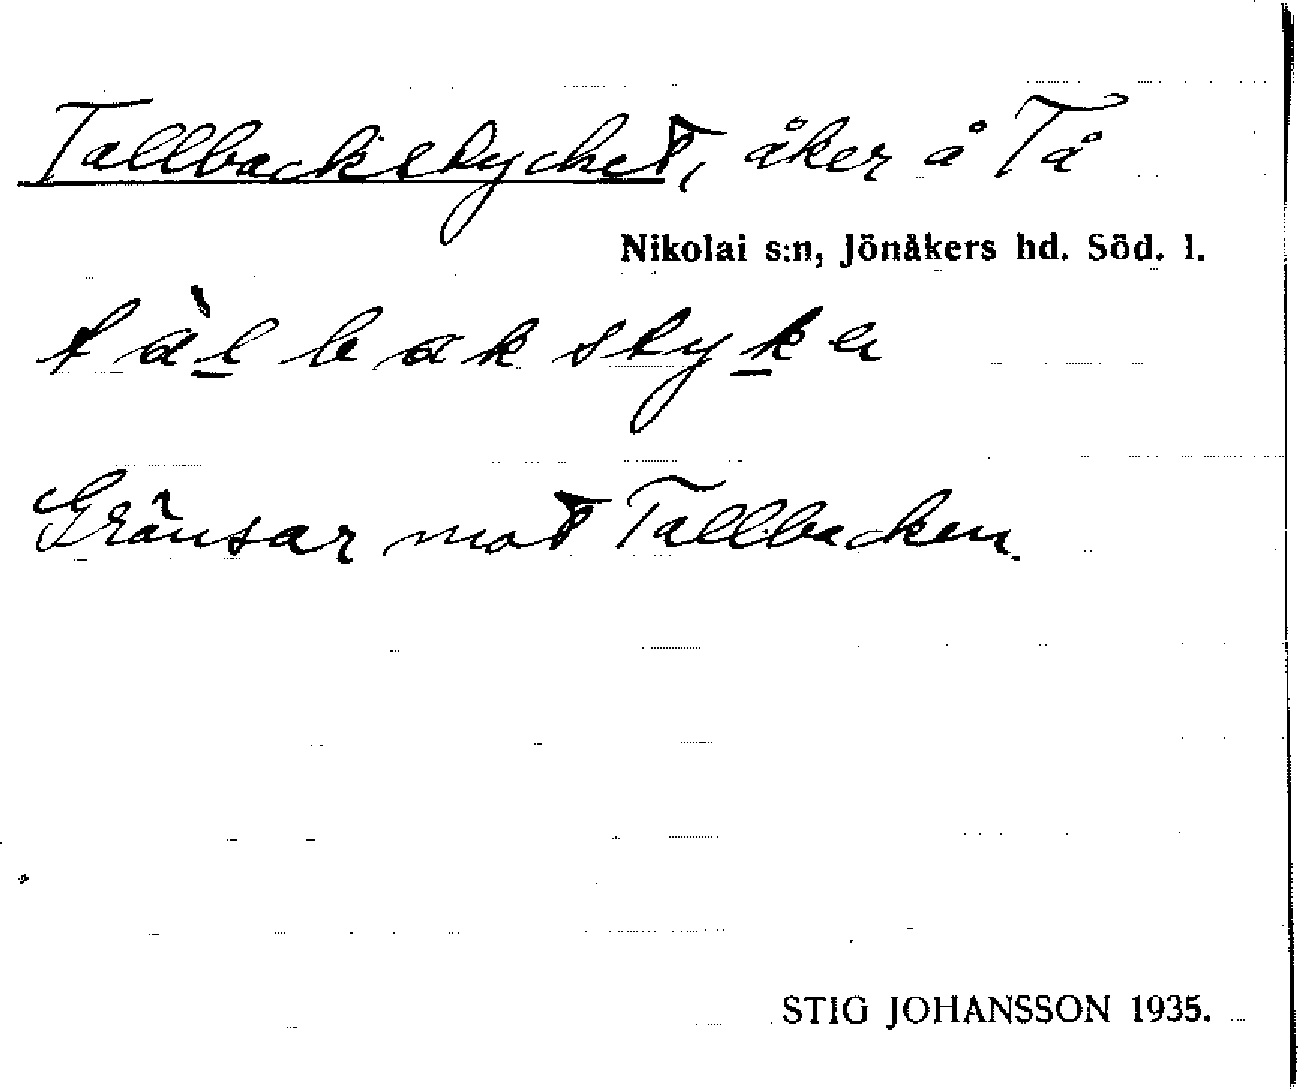 Tallbackstycket, åker å Tå
Nikolai s:n, Jönåkers hd. Söd. l.
tàl bak styke
Gränsar mot Tallbacken.
STIG JOHANSSON 1935.